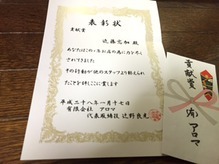 表彰状
貢献賞
近藤
あなたはこの一年お店の為に力を尽く
されてきました
その行動が他のスタッフより称えられ
たことを拝しここに賞します
平成二十八年一月十七日
有限会社 アロマ
代表取締役 辻野良光
貢献賞
(有)アロマ